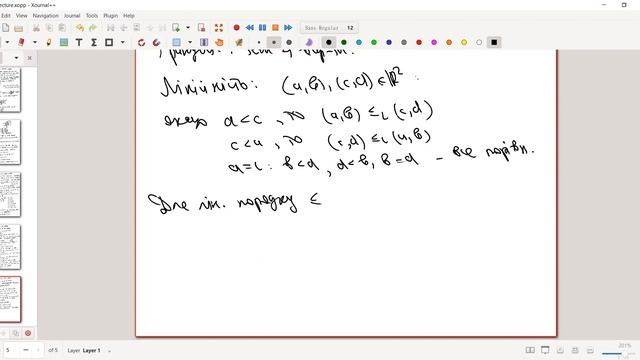 lecture.xopp - Xournal++
View Navigation Journal Tools Plugin Help
Sans Regular 12
Лінійність: (a,b),(c,d)∈ℝ² :
якщо a<c, то (a,b) ≤_L (c,d)
c<a, то (c,d) ≤_L (a,b)
a=c: b<d, d<b, b=d – все порівн.
Для лін. порядку ≤
5 of 5 Layer Layer 1 201%